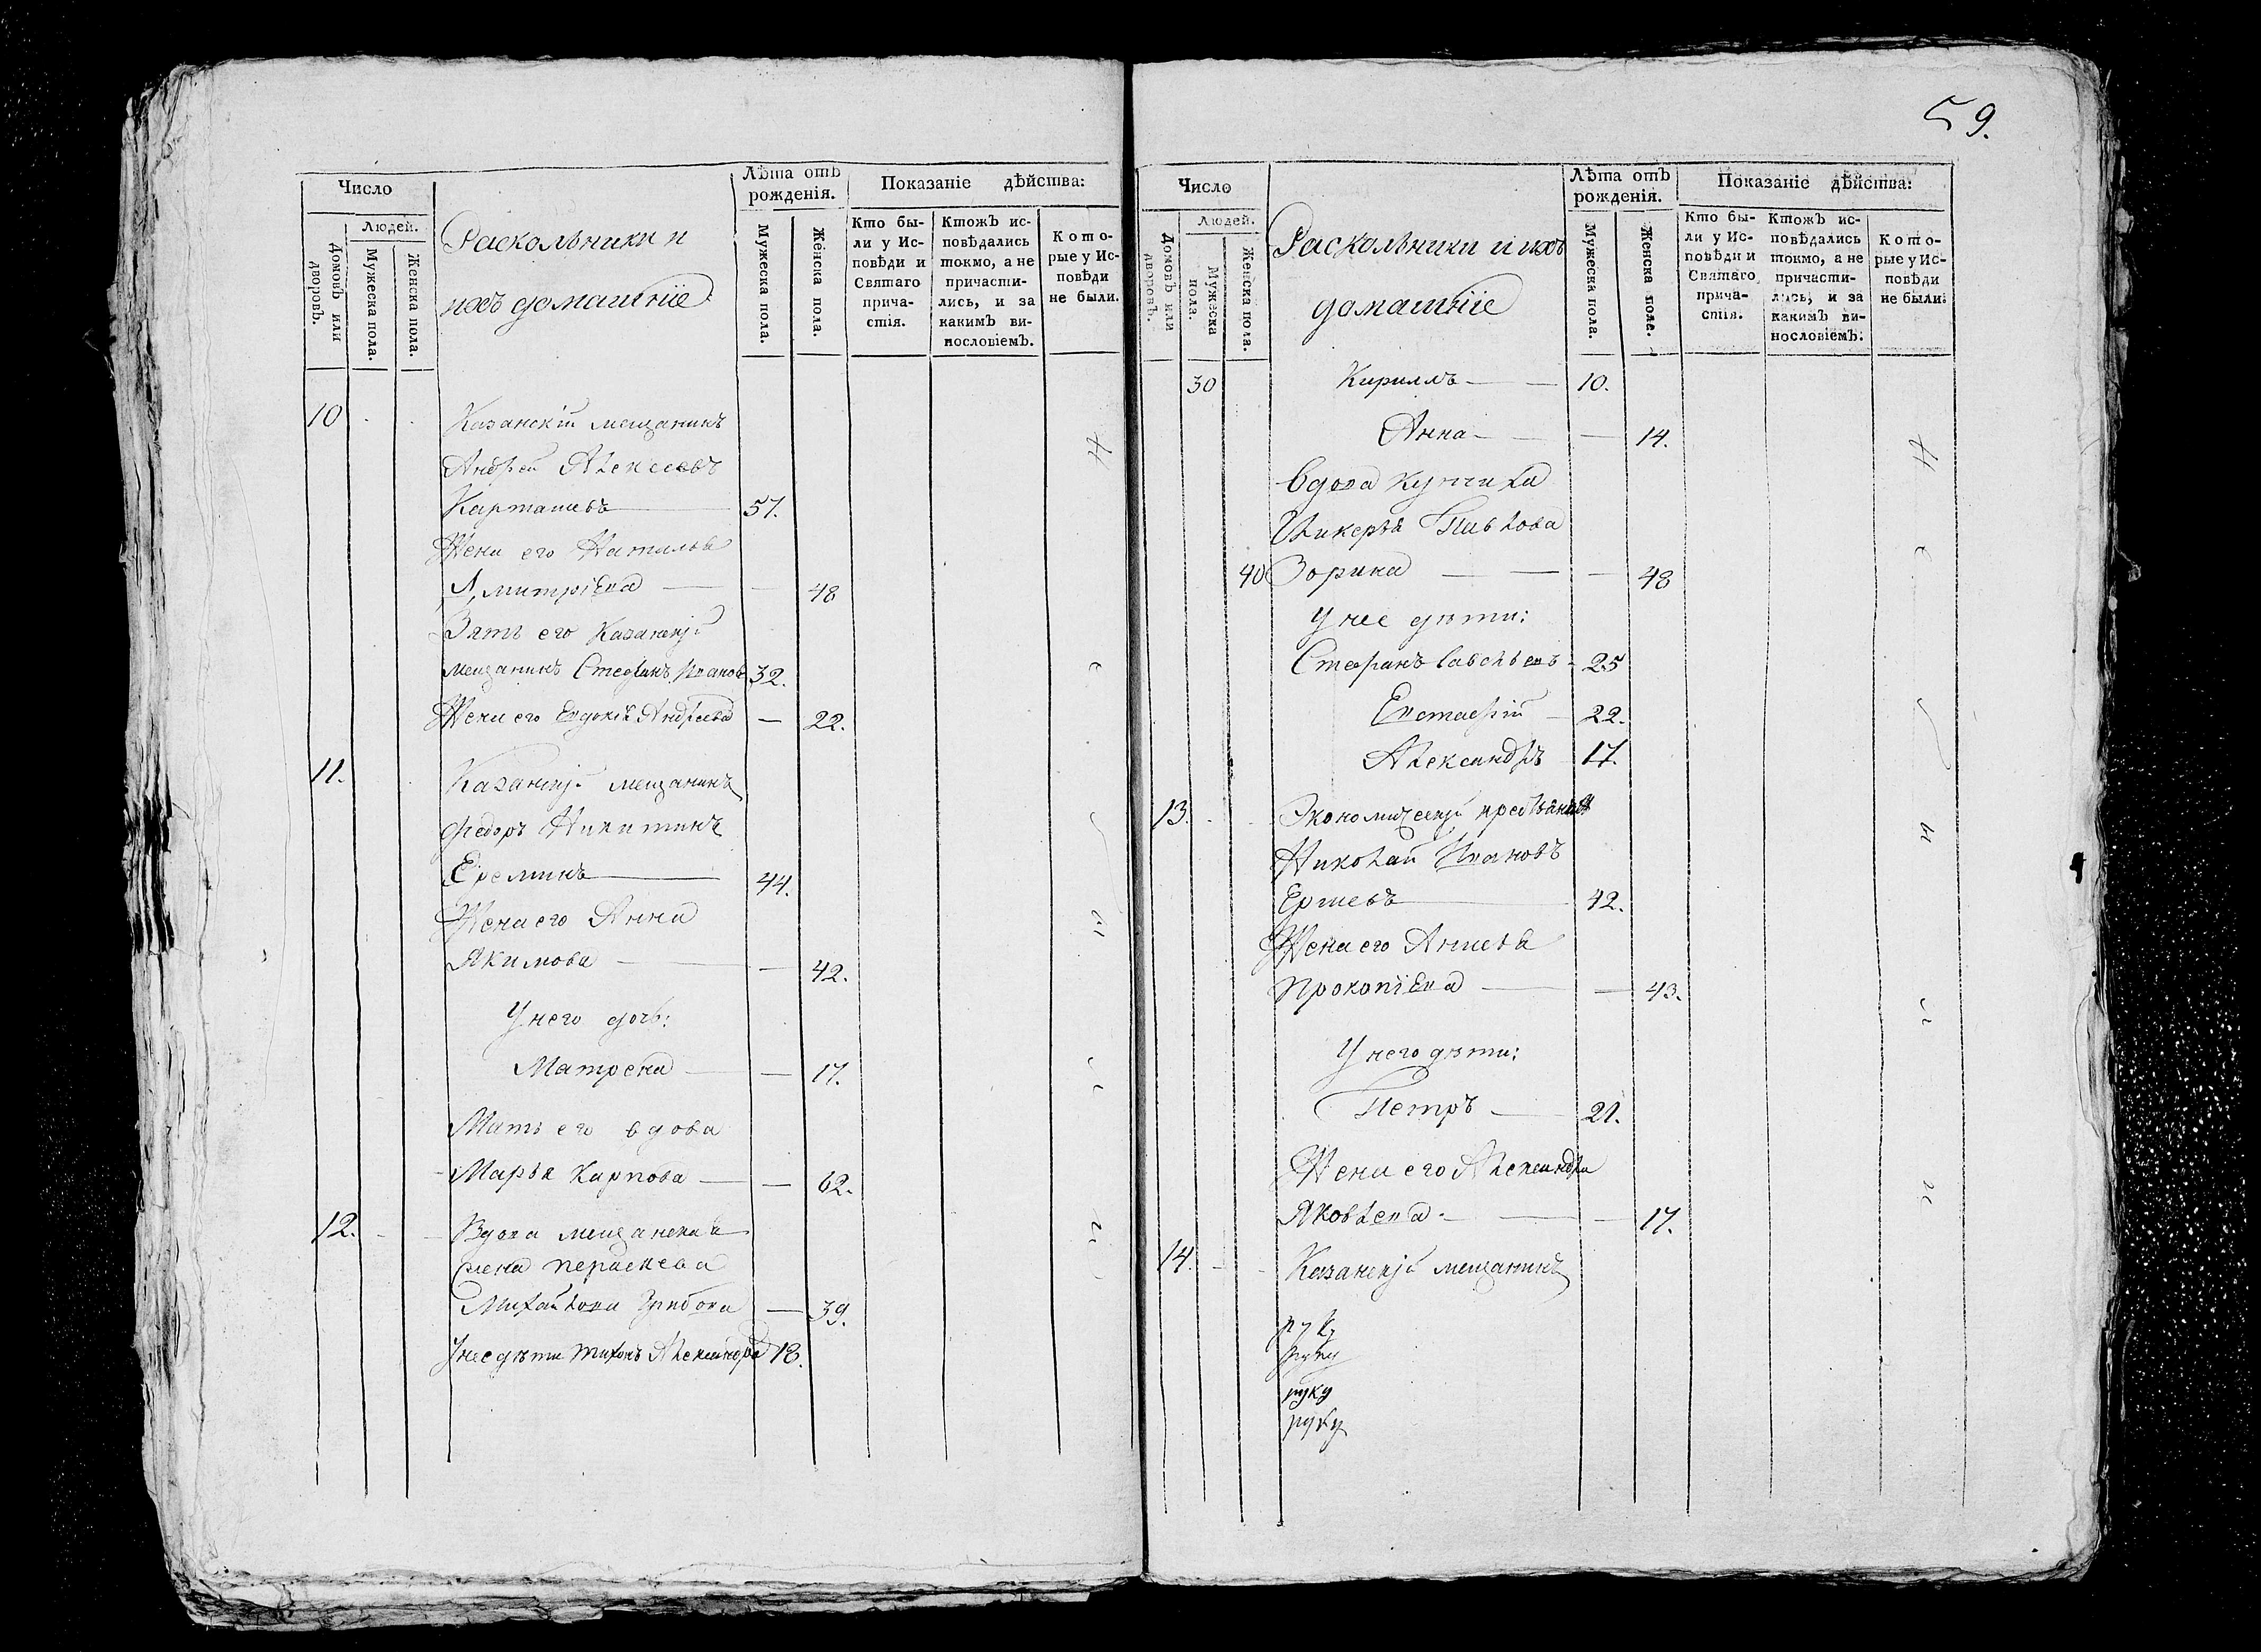 Число
Людей.
Домовъ или дворовъ.
Мужеска пола.
Женска пола.
Раскольники и
ихъ домашніе
Лѣта отъ
рожденія.
Мужеска пола.
Женска пола.
Показаніе дѣйства:
Кто бы-
ли у Ис-
повѣди и
Святаго
прича-
стія.
Ктожъ ис-
повѣдались
токмо, а не
причасти-
лись, и за
какимъ ви-
нословіемъ.
Кото-
рые у Ис-
повѣди
не были.
10 Казанскій мещанинъ
Андрей Алексеевъ
Карташевъ 57.
Жена его Наталья
Дмитріева — 48
Зять его Казанскій
мещанинъ Стефанъ Иванов 32.
Жена его Евдокія Андреева — 22.
11. Казанскій мещанинъ
Федоръ Никитинъ
Ереминъ 44.
Жена его Анна
Якимова — 42.
У него дочь:
Матрена — 17.
Мать его вдова
Марья Карпова — 62.
12. Вдова мещанская
жена Параскева
Михайлова Грибова — 39.
У нее дѣти Тихонъ Александров 18.
59.
Число
Людей.
Домовъ или дворовъ.
Мужеска пола.
Женска пола.
Раскольники и ихъ
домашніе
Лѣта отъ
рожденія.
Мужеска пола.
Женска поле.
Показаніе дѣйства:
Кто бы-
ли у Ис-
повѣди и
Святаго
прича-
стія.
Ктожъ ис-
повѣдались
токмо, а не
причасти-
лись, и за
какимъ ви-
нословіемъ.
Кото-
рые у Ис-
повѣди
не были.
30 Кириллъ — 10.
Анна — 14.
Вдова купчиха
Гликерья Павлова
40 Зорина — 48
У нее дѣти:
Стефанъ Савельевъ 25
Евстафій 22.
Александръ 17.
13. Экономическій крестьянинъ
Николай Ивановъ
Ершевъ 42.
Жена его Анисья
Прокопіева — 43.
У него дѣти:
Петръ 21.
Жена его Александра
Яковлева — 17.
14. Казанскій мещанинъ
руку
руку
руку